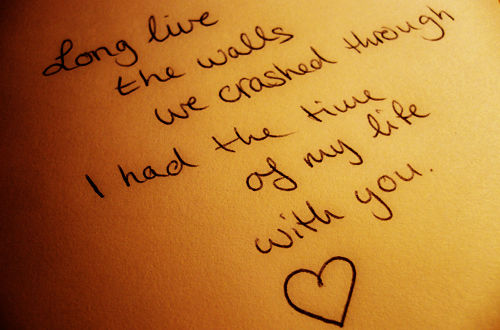 Long live
the walls
we crashed through
I had the time
of my life
with you.